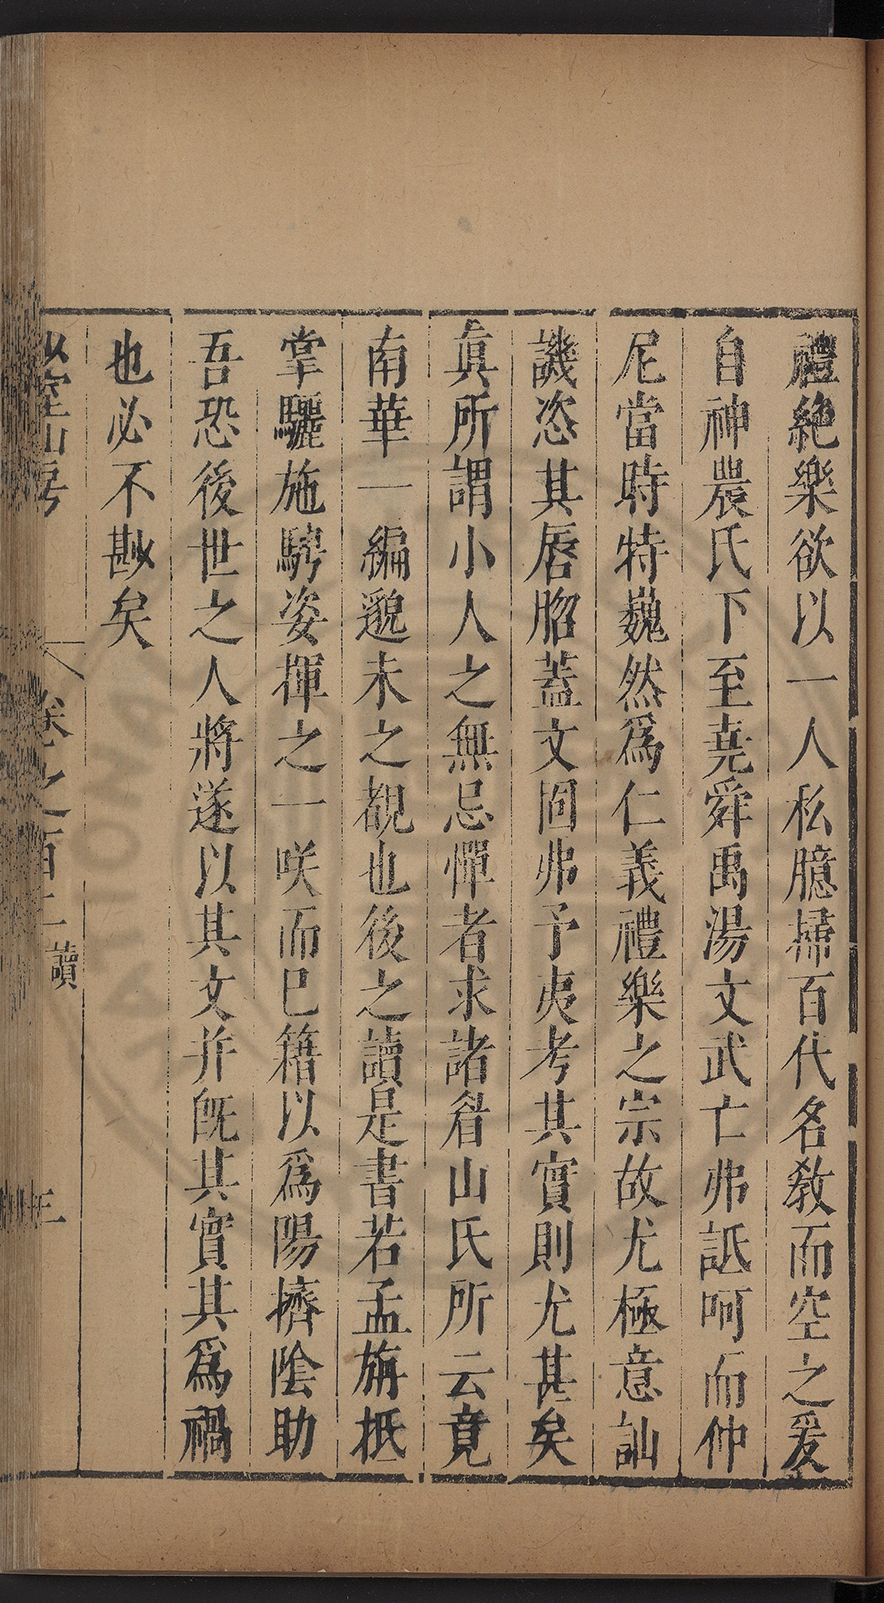 禮絶樂欲以一人私臆掃百代名敎而空之爰
自神農氏下至堯舜禹湯文武亡弗詆呵而仲
尼當時特巍然爲仁義禮樂之宗故尤極意訕
譏恣其唇脗蓋文固弗予夷考其實則尤甚矣
眞所謂小人之無忌憚者求諸眉山氏所云竟
南華一編邈未之覩也後之讀是書若孟旃抵
掌驪施騁姿揮之一咲而已籍以爲陽擠陰助
吾恐後世之人將遂以其文并旣其實其爲禍
也必不尠矣
山房
卷之百二 讀 三